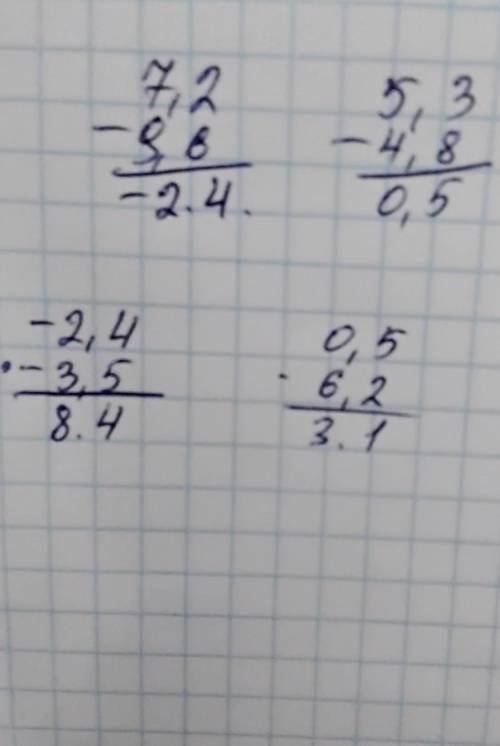 7,2
- 9,6
-2.4.
5,3
- 4,8
0,5
-2,4
· -3,5
8.4
0,5
· 6,2
3.1